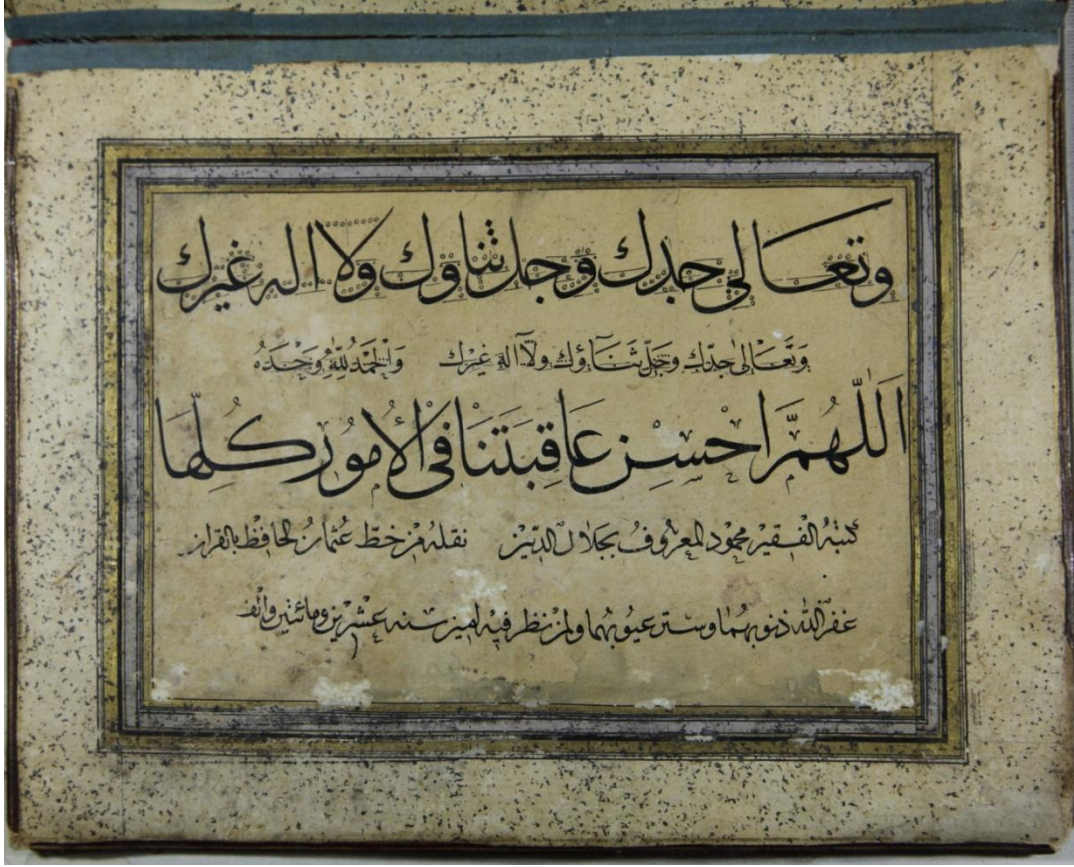 وتعالى جدك وجل ثناؤك ولا اله غيرك
وَتَعَالىٰ جدّك وجَلّ ثَنَآؤك ولآ اله غيرك والحَمْدُ للّٰهِ وَحْدَهُ
اَللّٰهُمَّ احْسِنْ عَاقِبَتَنَا فىْ الأمُورِ كُلِّهَا
كتبه الفقير محمود المعروف بجلال الدّين نقله من خطّ عثمان الحافظ بالقران
غفر اللّٰه ذنوبهما وستر عيوبهما ولمن نظر فيه امين سنه عشرين ومائتين والف